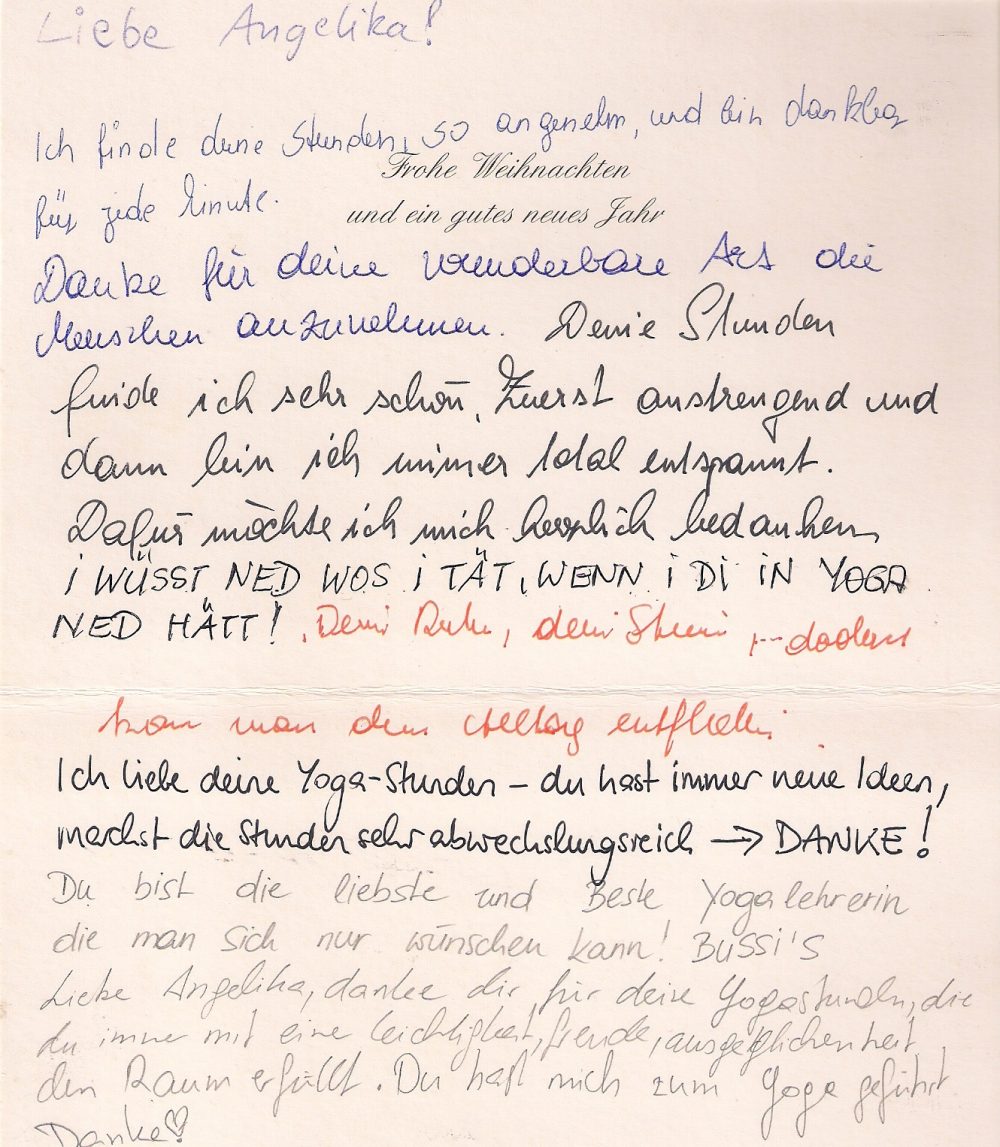 Liebe Angelika!
Ich finde deine Stunden, so angenehm, und bin dankbar
Frohe Weihnachten
für jede Minute.
und ein gutes neues Jahr
Danke für deine wunderbare Art die
Menschen anzunehmen. Deine Stunden
finde ich sehr schön, Zuerst anstrengend und
dann bin ich immer total entspannt.
Dafür möchte ich mich herzlich bedanken
i WÜSST NED WOS i TÄT, WENN i Di iN YOGA
NED HÄTT! Deine Ruhe, deine ... dadurch
kann man dem Alltag entfliehen
Ich liebe deine Yoga-Stunden – du hast immer neue Ideen,
machst die Stunden sehr abwechslungsreich → DANKE!
Du bist die liebste und Beste Yogalehrerin
die man sich nur wünschen kann! BUSSI'S
Liebe Angelika, danke dir, für deine Yogastunden, die
du immer mit eine Leichtigkeit, freude, ausgeglichenheit
den Raum erfüllt. Du hast mich zum Yoga geführt
Danke♡